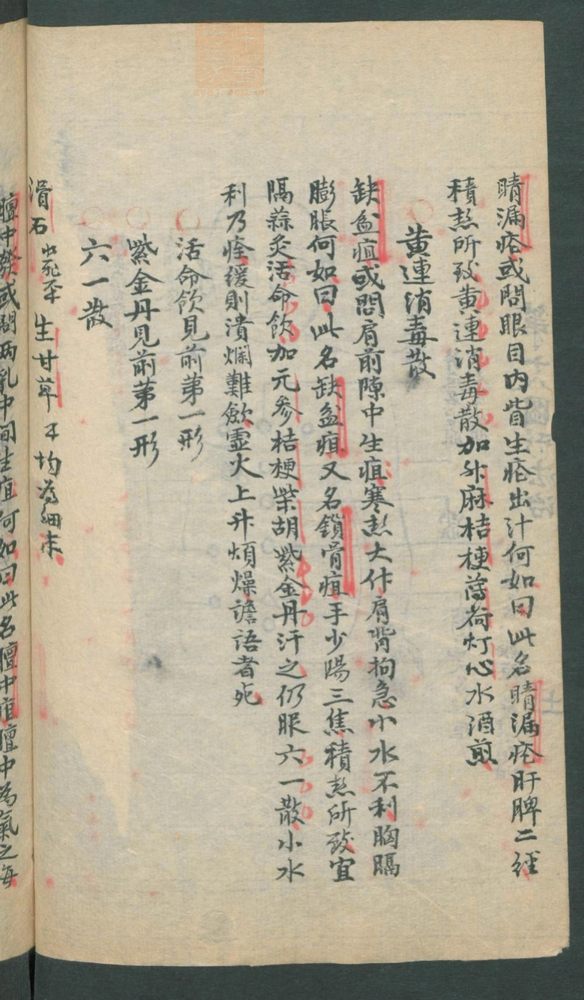 睛漏疮或問眼目内眥生疮出汁何如曰此名睛漏疮肝脾二經
積热所致黄連消毒散加升麻桔梗薄荷灯心水酒煎
黄連消毒散
缺盆疽或問肩前隙中生疽寒热大作肩背拘急小水不利胸膈
膨脹何如曰此名缺盆疽又名鎖骨疽手少陽三焦積热所致宜
隔蒜灸活命飲加元参桔梗柴胡紫金丹汗之仍服六一散小水
利乃怪缓則潰爛難歛虚火上升煩燥譫語者死
活命飲見前第一形
紫金丹見前第一形
六一散
滑石 生甘草 均為細末
膻中發或問两乳中间生疽何如曰此名膻中疽膻中為氣之海